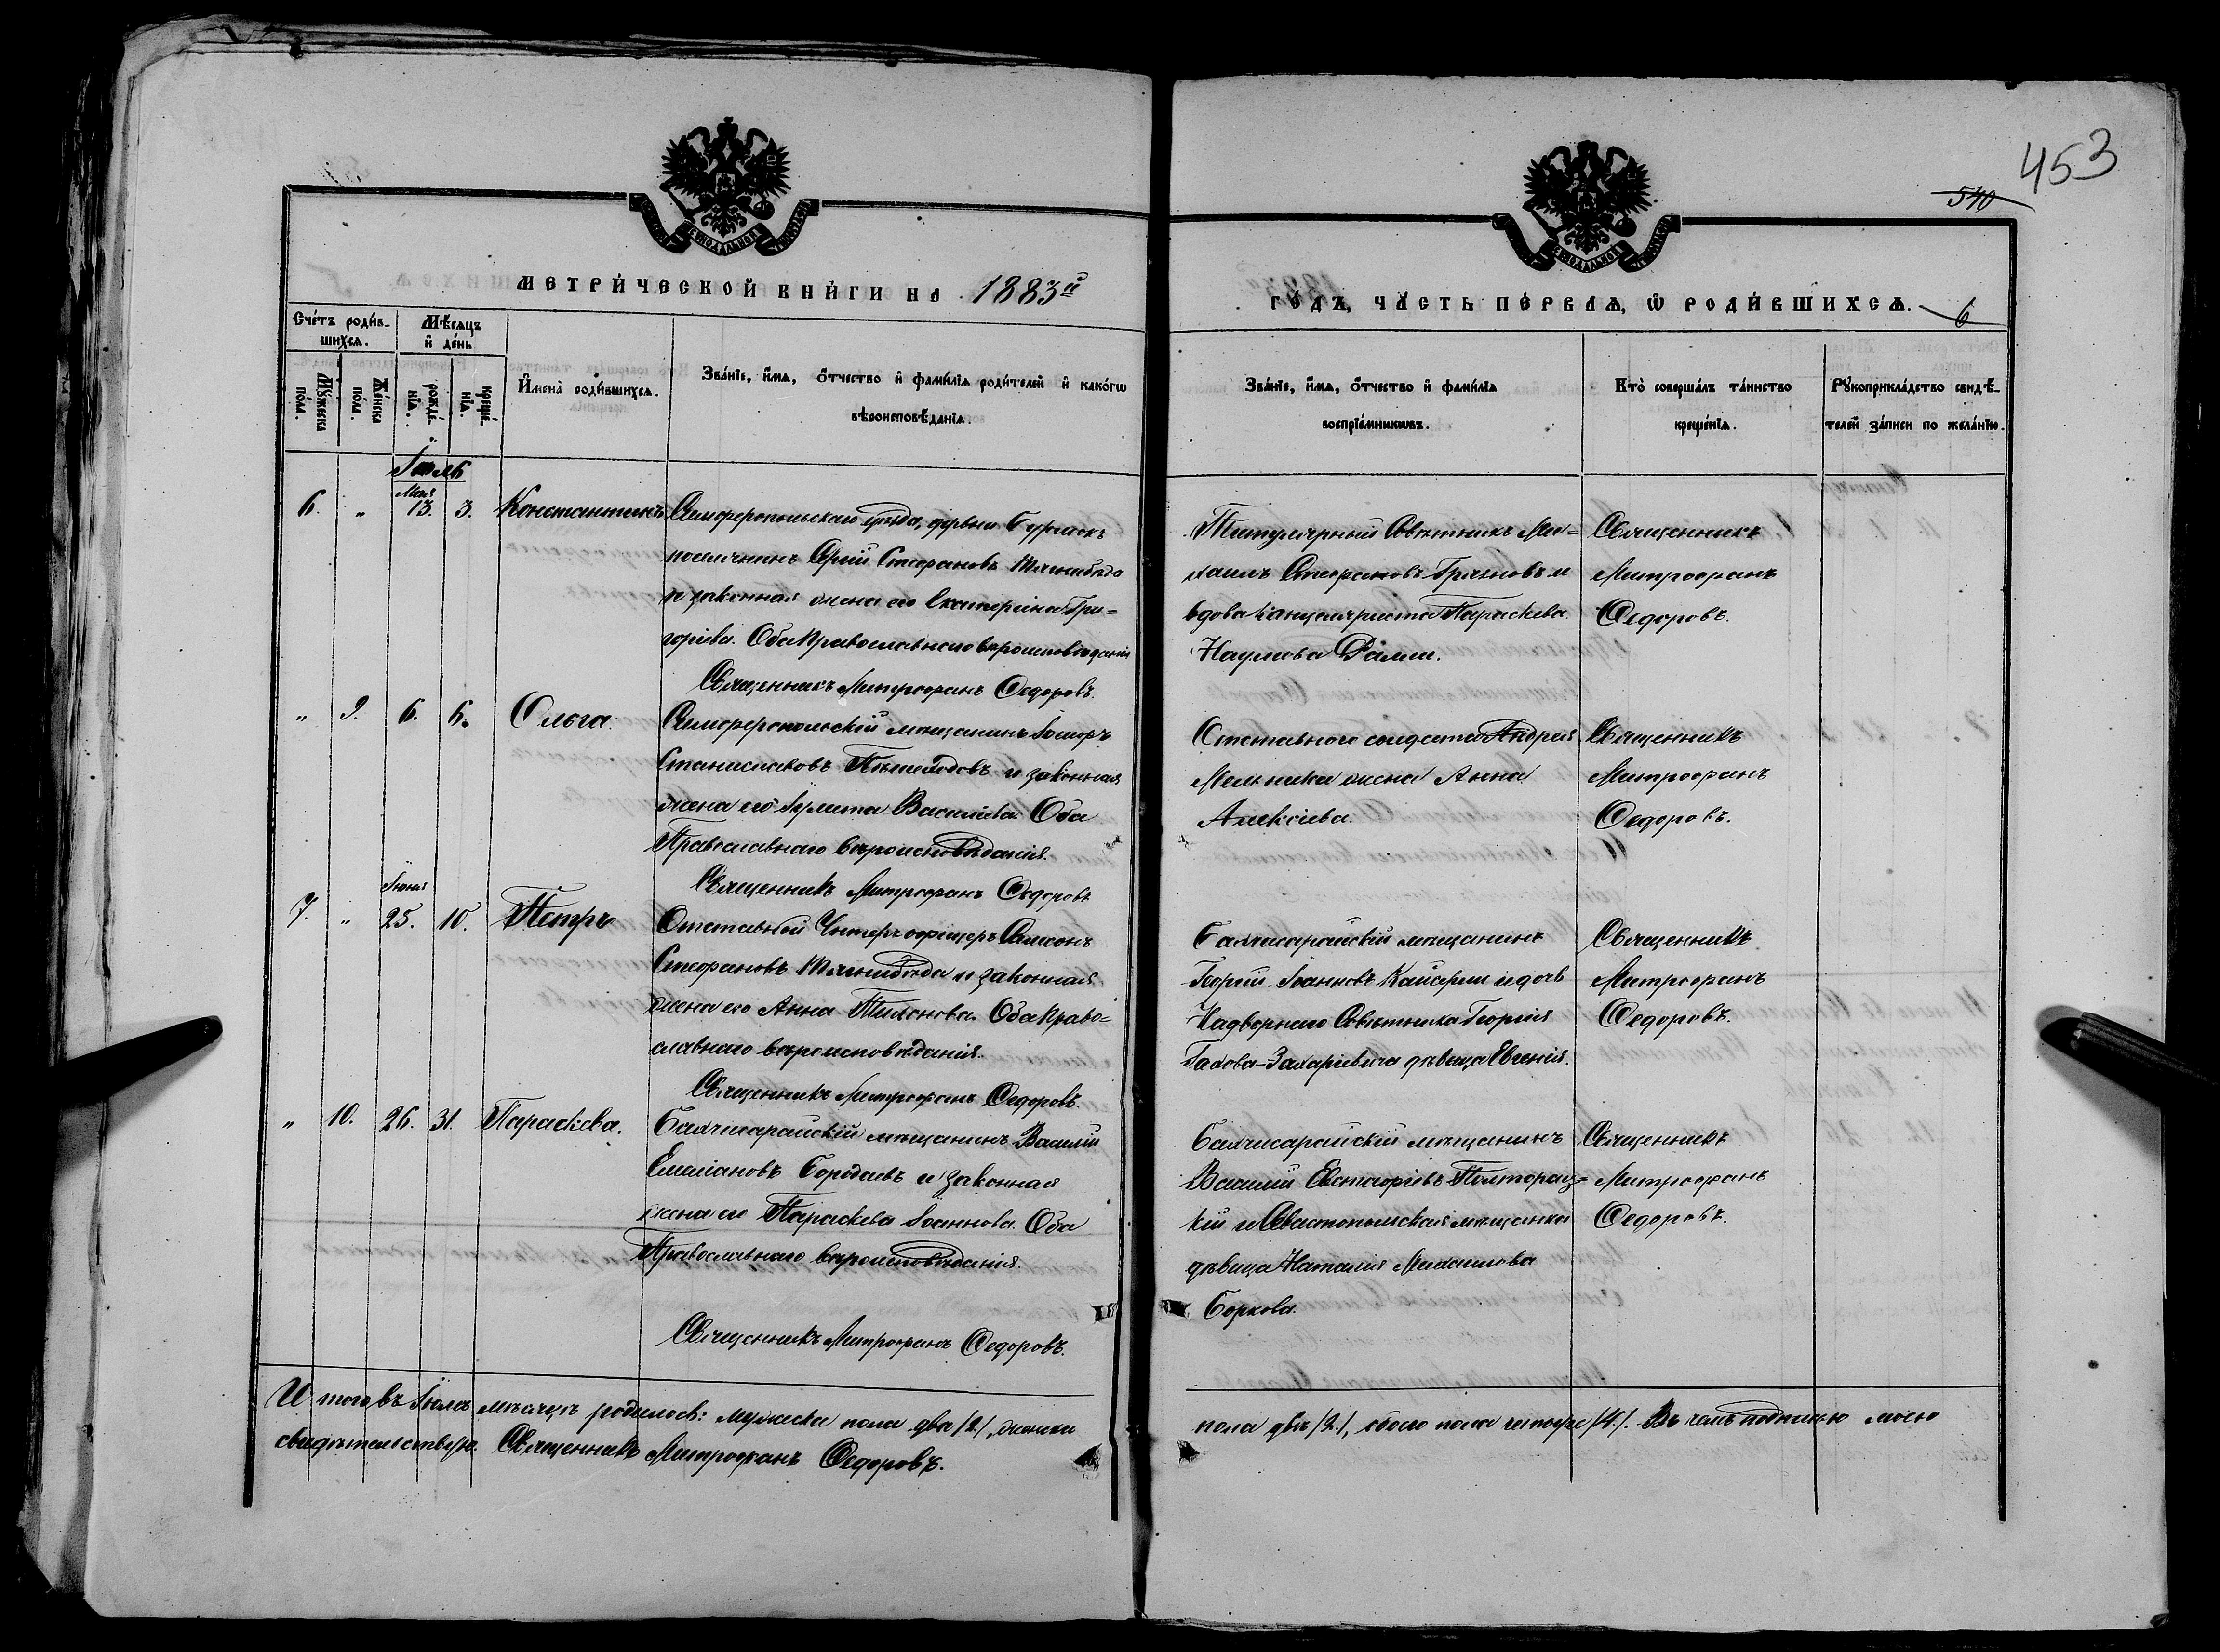 453
540
МЕТРИ́ЧЕСКОЙ КНИ́ГИ НА 1883й
ГО́ДЪ, ЧА́СТЬ ПЕ́РВАѦ, Ѽ РОДИ́ВШИХСѦ. 6
Сче́тъ роди́в-
шихсѧ.
Мѣ́сѧцъ
и҆ де́нь
Мꙋ́жеска
по́ла.
Же́нска
по́ла.
рожде́-
нїѧ.
креще́-
нїѧ.
И҆мена̀ роди́вшихсѧ.
Зва́нїе, и҆́мѧ, ѻ҆́тчество и҆ фами́лїѧ роди́телей и҆ како́гѡ
вѣроисповѣ́данїѧ.
Зва́нїе, и҆́мѧ, ѻ҆́тчество и҆ фами́лїѧ
воспрїе́мникѡвъ.
Кто̀ соверша́лъ та́инство
креще́нїѧ.
Рꙋкоприкла́дство свидѣ́-
телей за́писи по жела́нїю.
Іюль
Мая
6. " 13. 3. Константинъ
Симферопольскаго уѣзда, деревни
поселянинъ Стефановъ
и законная жена его Екатерина Гри=
горіева. Оба Православнаго вѣроисповѣданія
Священникъ Митрофанъ Ѳедоровъ.
Титулярный Совѣтникъ Ми=
хаилъ Стефановъ Грязновъ и
вдова канцеляриста Параскева
Наумова
Священникъ
Митрофанъ
Ѳедоровъ.
" 9. 6. 6. Ольга.
Симферопольскій мѣщанинъ
Станиславовъ и законная
жена его Василіева. Оба
Православнаго вѣроисповѣданія.
Священникъ Митрофанъ Ѳедоровъ
Отставного солдата Андрея
Мельника жена Анна
Алексіева.
Священникъ
Митрофанъ
Ѳедоровъ.
Іюня
7. " 25. 10. Петръ
Отставной Унтеръ офицеръ Самсонъ
Стефановъ и законная
жена его Анна Тихонова. Оба Право=
славнаго вѣроисповѣданія.
Священникъ Митрофанъ Ѳедоровъ.
Бахчисарайскій мѣщанинъ
Георгій Іоанновъ и дочь
Надворнаго Совѣтника Георгія
Захаріевича дѣвица Евгенія.
Священникъ
Митрофанъ
Ѳедоровъ.
" 10. 26. 31. Параскева.
Бахчисарайскій мѣщанинъ Василій
Емиліановъ и законная
жена его Параскева Іоаннова. Оба
Православнаго вѣроисповѣданія.
Священникъ Митрофанъ Ѳедоровъ.
Бахчисарайскій мѣщанинъ
Василій Евстафіевъ Полторац=
кій и Севастопольская мѣщанка
дѣвица Наталія Михаилова
Боркова.
Священникъ
Митрофанъ
Ѳедоровъ.
Итого въ Іюлѣ мѣсяцѣ родилось: мужеска пола два /2/, женска
пола двѣ /2/, обоего пола четыре /4/. Въ чемъ подписью моею
свидѣтельствую. Священникъ Митрофанъ Ѳедоровъ.